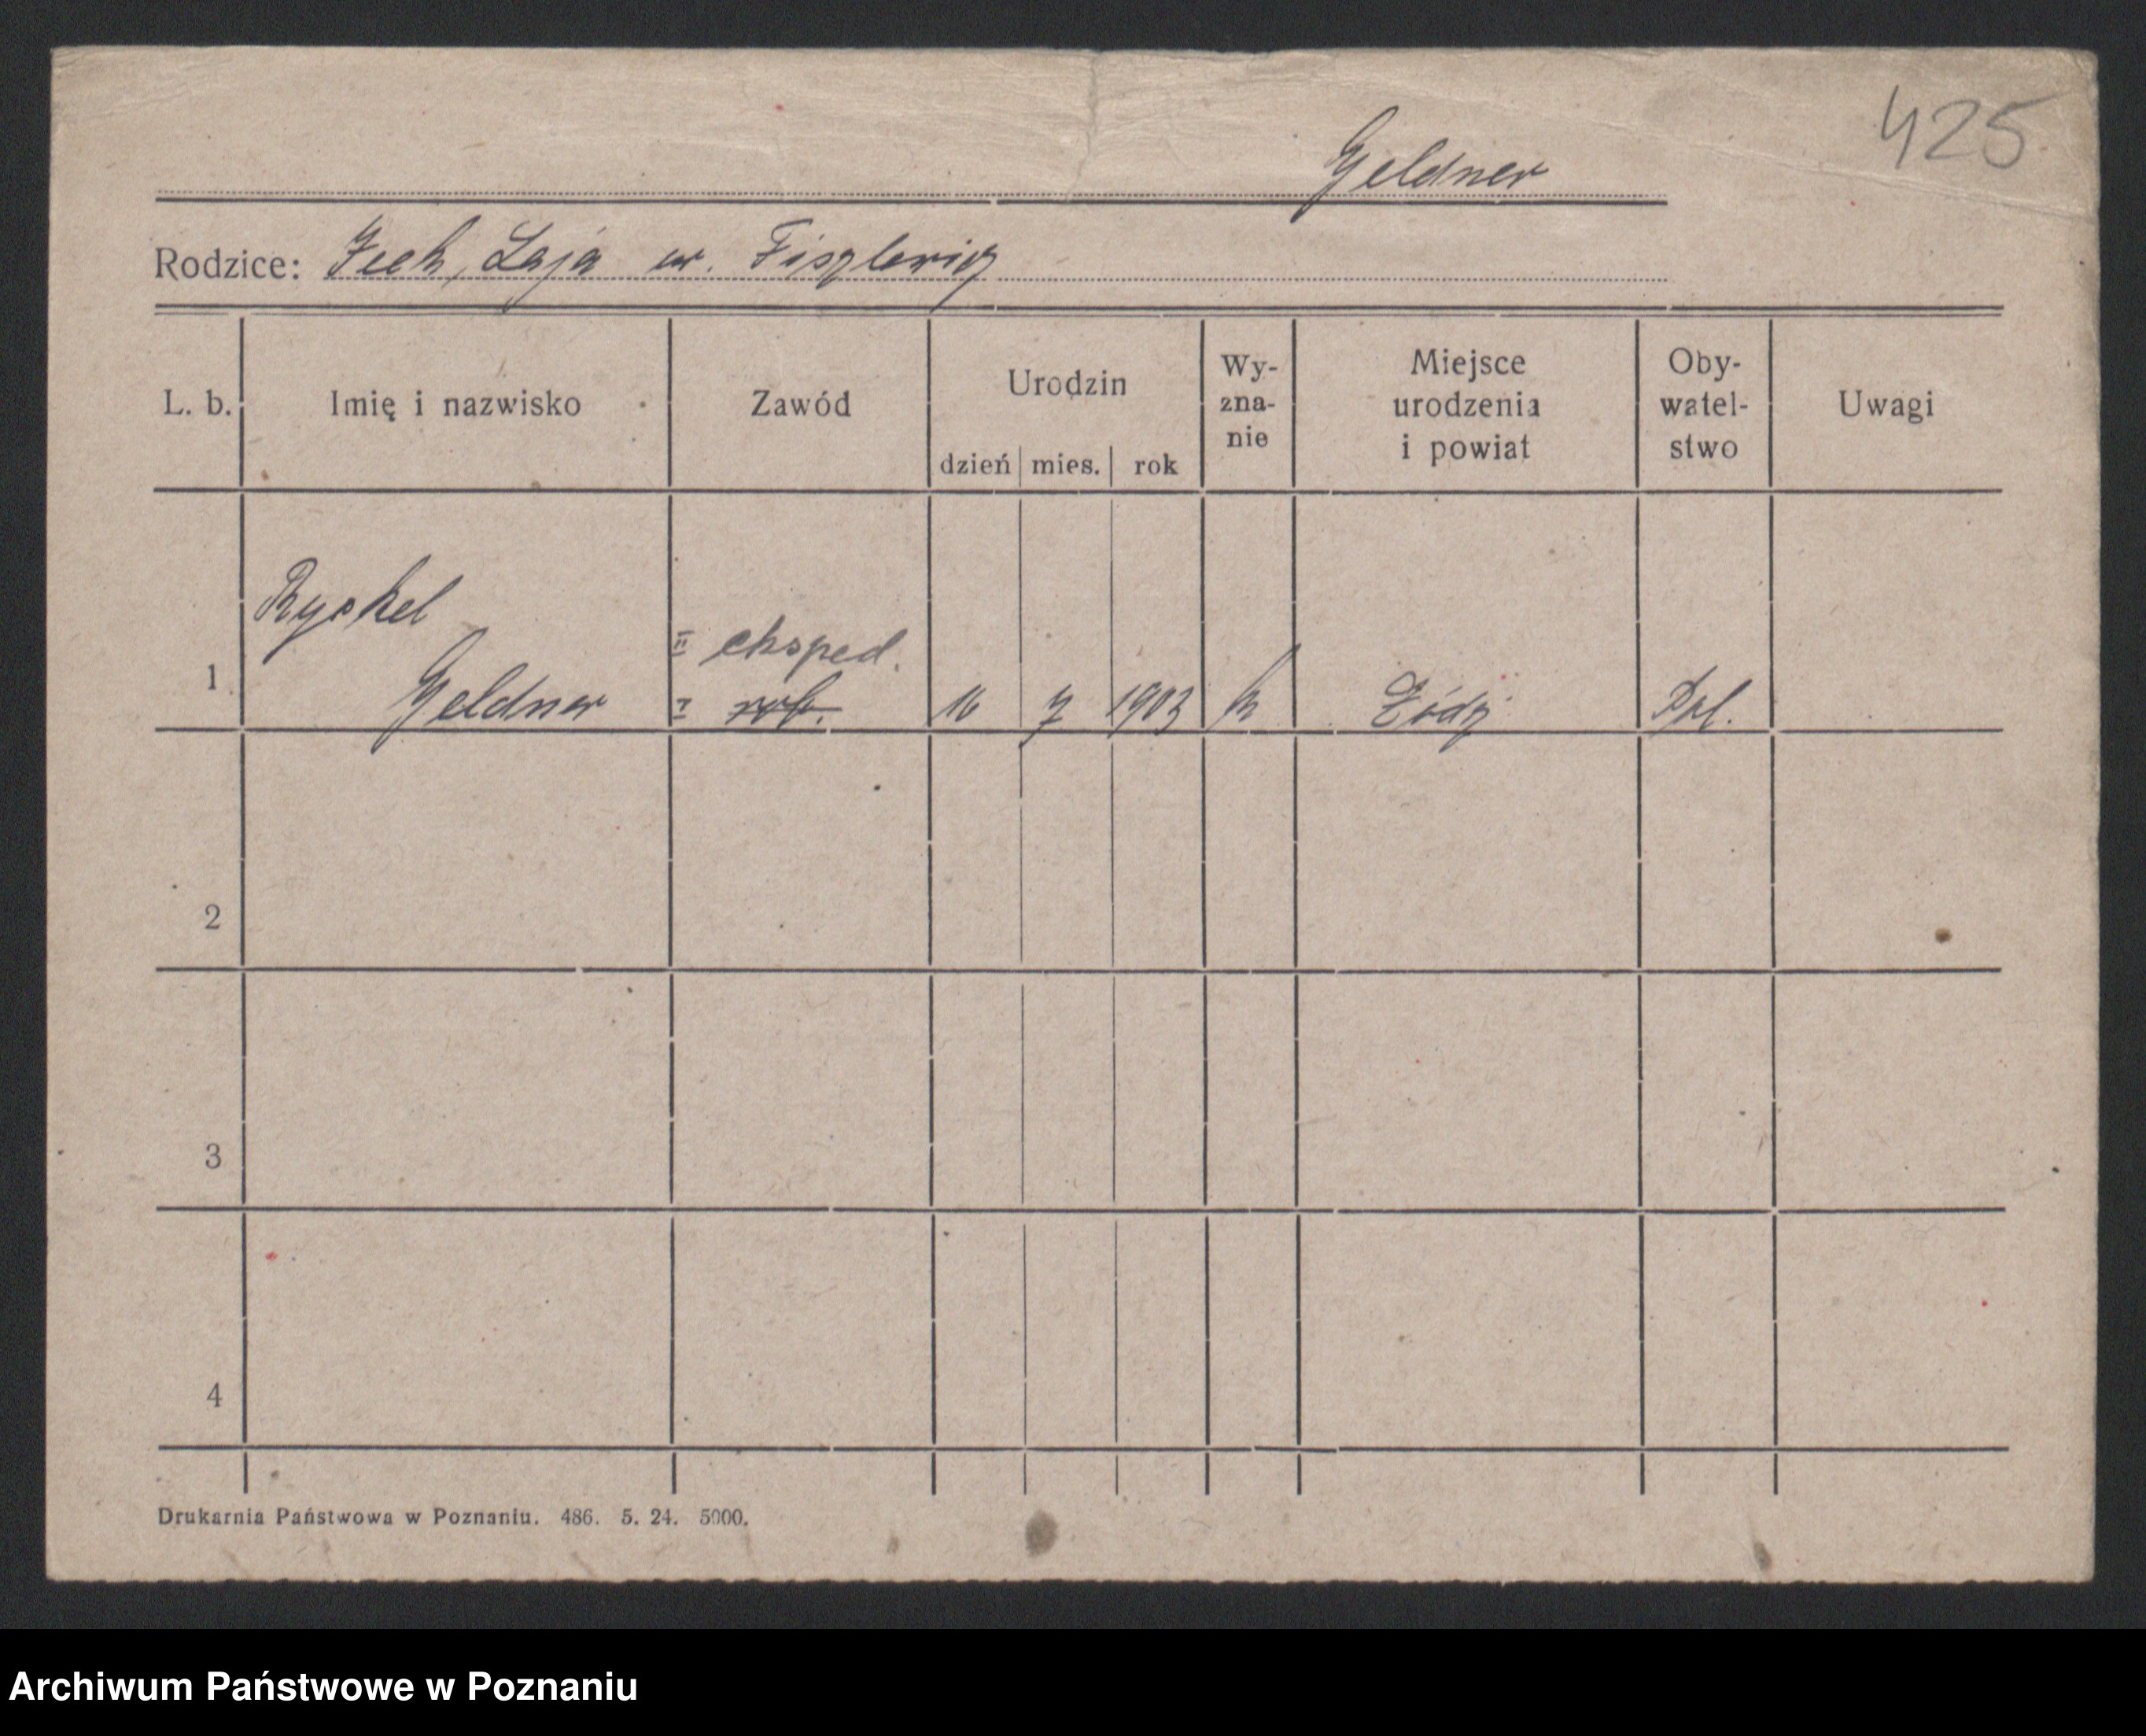 425
Geldner
Rodzice: Icek, Łaja ur. Fiszlewicz
L. b. Imię i nazwisko Zawód Urodzin dzień mies. rok Wy-zna-nie Miejsce urodzenia i powiat Oby-watel-stwo Uwagi
Ryskel
II eksped.
1 Geldner I rob. 16 7 1903 Łódź Pol.
2
3
4
Drukarnia Państwowa w Poznaniu. 486. 5. 24. 5000.
Archiwum Państwowe w Poznaniu